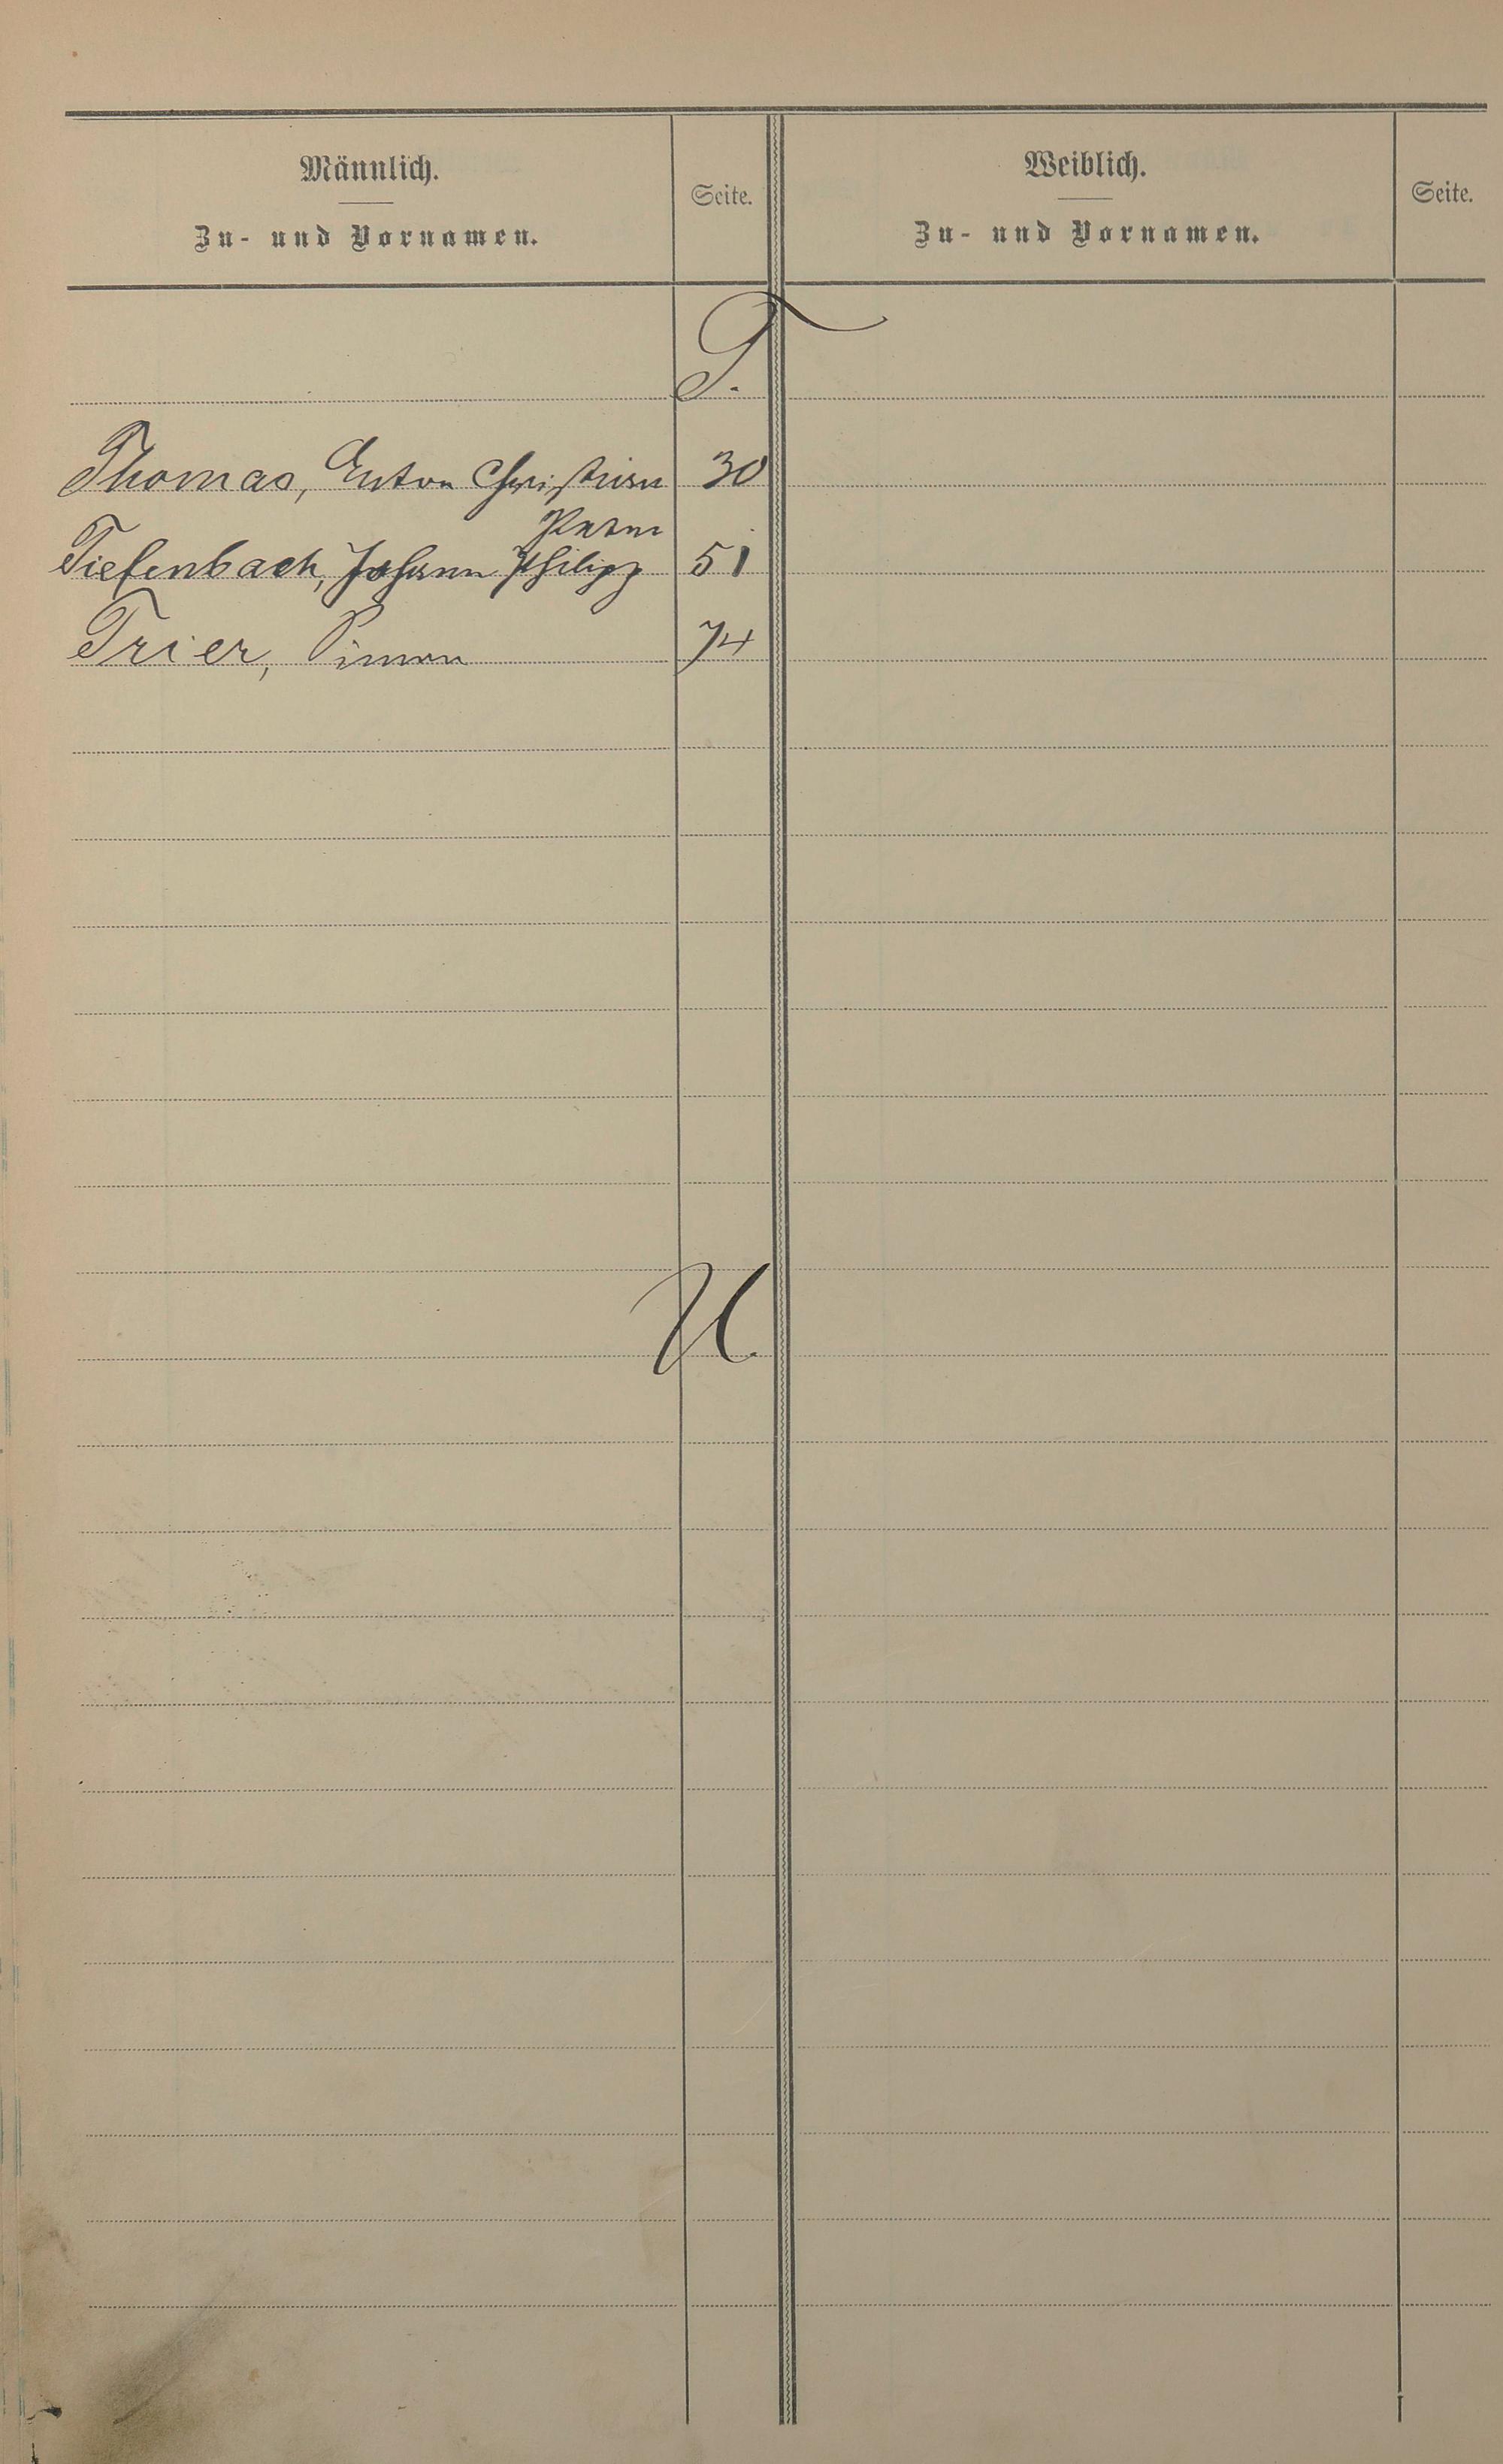 Männlich.
Zu- und Vornamen.
Seite.
Weiblich.
Zu- und Vornamen.
Seite.
T.
Thomas, Anton Christian 30
Peter
Tiefenbach, Johann Philipp 51
Trier, Simon 74
U.